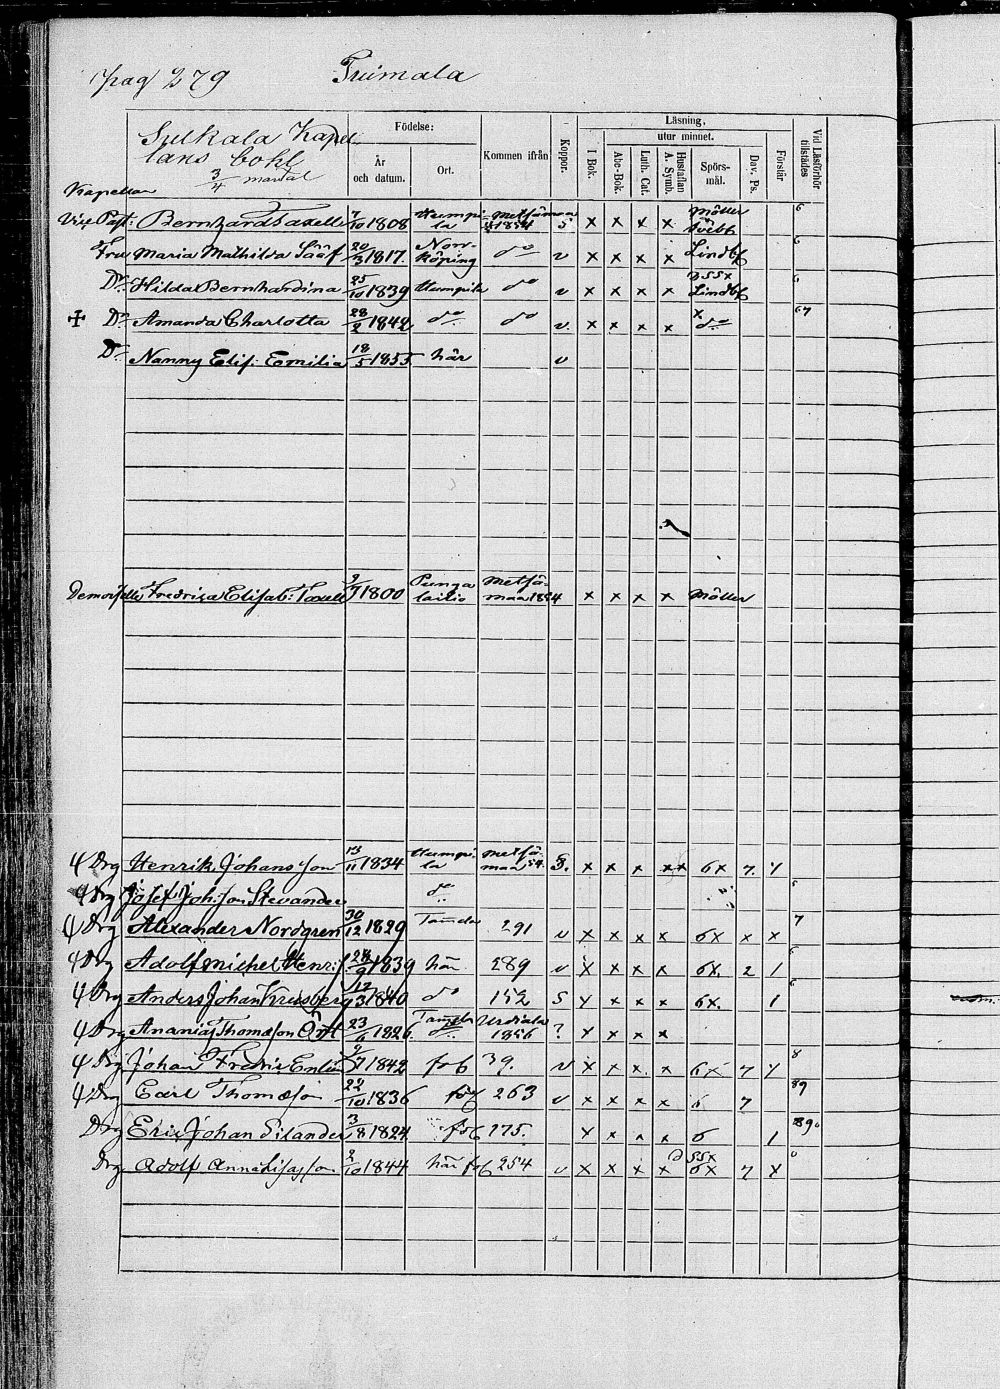 pag 279 Truimala
Sulkala Kapel
lans bohl
3/4 mantal
Födelse:
År och datum.
Ort.
Kommen ifrån
Koppor.
Läsning,
I Bok.
utur minnet.
Abc-Bok.
Luth. Cat.
Hustaflan A. Symb.
Spörs-mål.
Dav. Ps.
Förstår
Vid Läsförhör tillstädes
Kapellan
Vice Past. Bernhard Taxelle 7/10 1808 Humpila Metsämaa 1854 5 x x x x Möller Svebb 6
Fru Maria Mathilda Sääf 20/3 1817 Norrköping do v x x x x Lindbg 6
Dr Hilda Bernhardina 25/10 1839 Humpila do v x x x x 55x Lindbg 6
Dr Amanda Charlotta 28/2 1842 do do v x x x x x do 67
Dr Nanny Elis: Emilia 18/5 1855 här v
Demoiselle Fredrica Elisab: Taxell 1800 Pungalaitio Metsämaa 1854 x x x x Möller
Drg Henrik Johansson 13/11 1834 Humpila Metsämaa 54 x x x xx 6x 7 7
Drg Josef Joh:son Stevander do
Drg Alexander Nordgren 30/12 1829 Tamela 291 v x x x x 6x x x 7
Drg Adolf Michel Henrs 1839 här 289 v x x x x 6x. 2 1
Drg Anders Johan 1840 do 152 5 x x x x 6x. 1
Drg Ananias Thomasson Öst 23/6 1826 Tamela Urdiala 1856 ? x x x x
Drg Johan Fredric Enlun 1842 fol 39. v x x x x 6x 7 7 8
Drg Carl Thomasson 22/10 1836 fol 263 v x x x x 6 7 89
Drg Eric Johan Silander 3/8 1824 fol 175. x x x x 6 1
Drg Adolf Annalisasson 2/10 1844 här fol 254 v x x x x 55x 6x 7 x